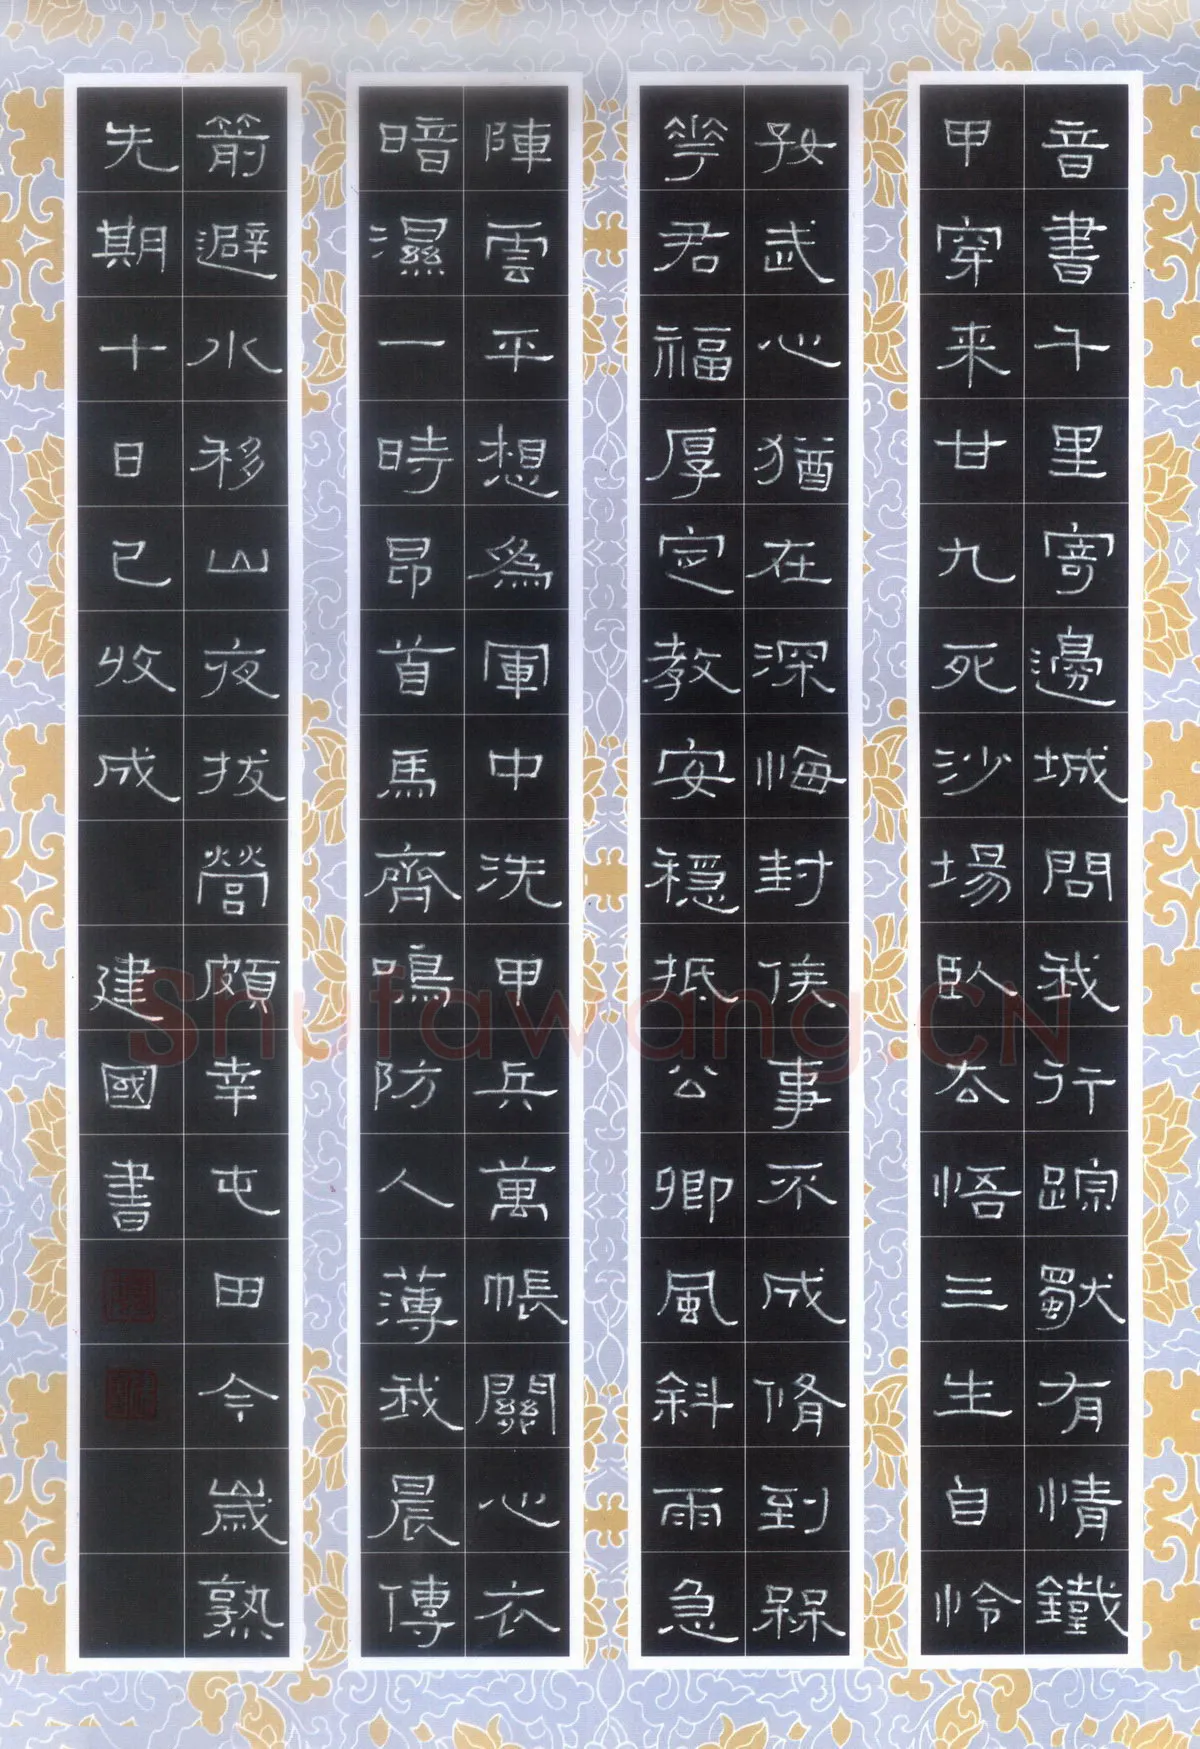 音書千里寄邊城問我行踪獨有情鐵
甲穿来甘九死沙場臥去悟三生自怜
好武心猶在深悔封侯事不成脩到槑
華君福厚定教安穩抵公卿風斜雨急
陣雲平想為軍中洗甲兵萬帳關心衣
暗濕一時昂首馬齊鳴防人薄我晨傳
箭避水移山夜拔營頗幸屯田今歲熟
先期十日已收成
建國書
Shufawang.CN